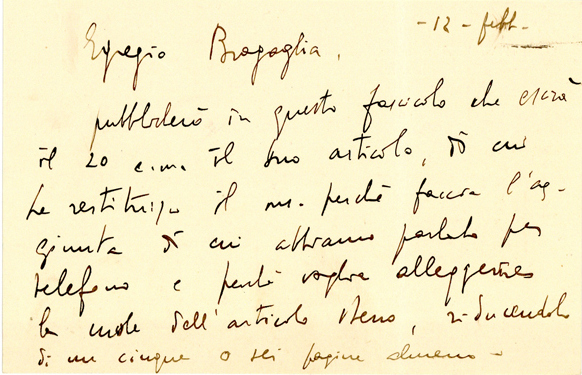 - 12 - febb -
Egregio Bragaglia,
pubblicherò in questo fascicolo che escirà
il 20 c.m. il suo articolo, di cui
Le restituisco il ms. perché faccia l'ag-
giunta di cui abbiamo parlato per
telefono e perché voglia alleggerire
la mole dell'articolo stesso, riducendolo
di un cinque o sei pagine almeno -